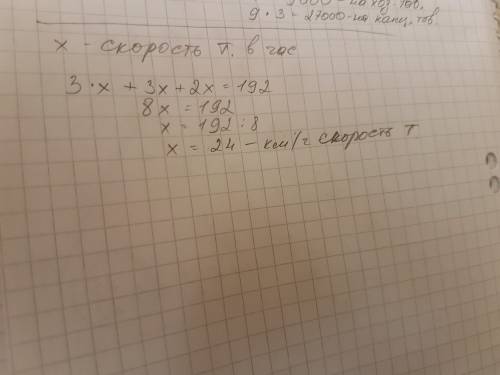 на хоз. тов.
9 · 3 = 27000 - на канц. тов.
x - скорость т. в час
3 · x + 3x + 2x = 192
8x = 192
x = 192 : 8
x = 24 - км/ч скорость т